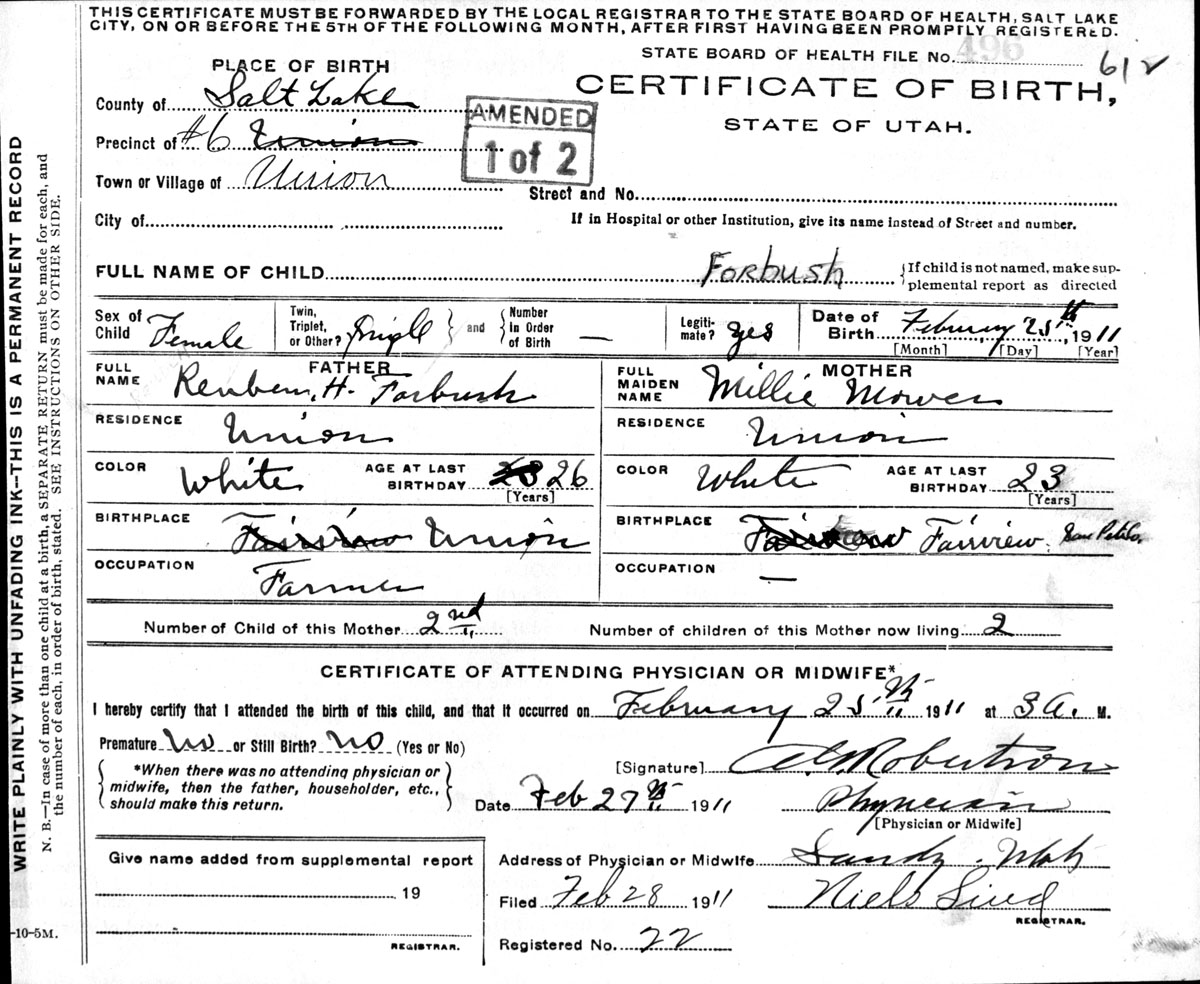 THIS CERTIFICATE MUST BE FORWARDED BY THE LOCAL REGISTRAR TO THE STATE BOARD OF HEALTH, SALT LAKE
CITY, ON OR BEFORE THE 5TH OF THE FOLLOWING MONTH, AFTER FIRST HAVING BEEN PROMPTLY REGISTERED.
STATE BOARD OF HEALTH FILE No. 496 612
PLACE OF BIRTH
CERTIFICATE OF BIRTH,
STATE OF UTAH.
County of Salt Lake
AMENDED
1 of 2
Precinct of #6 Union
Town or Village of Union
Street and No.
City of
If in Hospital or other Institution, give its name instead of Street and number.
FULL NAME OF CHILD Forbush
{If child is not named, make sup-
plemental report as directed
Sex of Child Female
Twin, Triplet, or Other? Single } and { Number in Order of Birth —
Legiti-mate? yes
Date of Birth February 25th, 1911
[Month] [Day] [Year]
FATHER
FULL NAME Reuben, H. Forbush
MOTHER
FULL MAIDEN NAME Millie Mower
RESIDENCE Union
RESIDENCE Union
COLOR White AGE AT LAST BIRTHDAY 26 [Years]
COLOR White AGE AT LAST BIRTHDAY 23 [Years]
BIRTHPLACE Fairview Union
BIRTHPLACE Fairview Fairview. San Pete Co.
OCCUPATION Farmer
OCCUPATION —
Number of Child of this Mother 2nd
Number of children of this Mother now living 2
CERTIFICATE OF ATTENDING PHYSICIAN OR MIDWIFE*
I hereby certify that I attended the birth of this child, and that it occurred on February 25th 1911 at 3 A. M.
Premature No or Still Birth? No (Yes or No)
{ *When there was no attending physician or
midwife, then the father, householder, etc.,
should make this return. }
[Signature] Robertson
Date Feb 27th 1911 Physician
[Physician or Midwife]
Give name added from supplemental report
19
REGISTRAR.
Address of Physician or Midwife Sandy. Utah
Filed Feb 28 1911 Niels Lind
REGISTRAR.
Registered No. 22
WRITE PLAINLY WITH UNFADING INK—THIS IS A PERMANENT RECORD
N. B.—In case of more than one child at a birth, a SEPARATE RETURN must be made for each, and
the number of each, in order of birth, stated. SEE INSTRUCTIONS ON OTHER SIDE.
-10-5M.